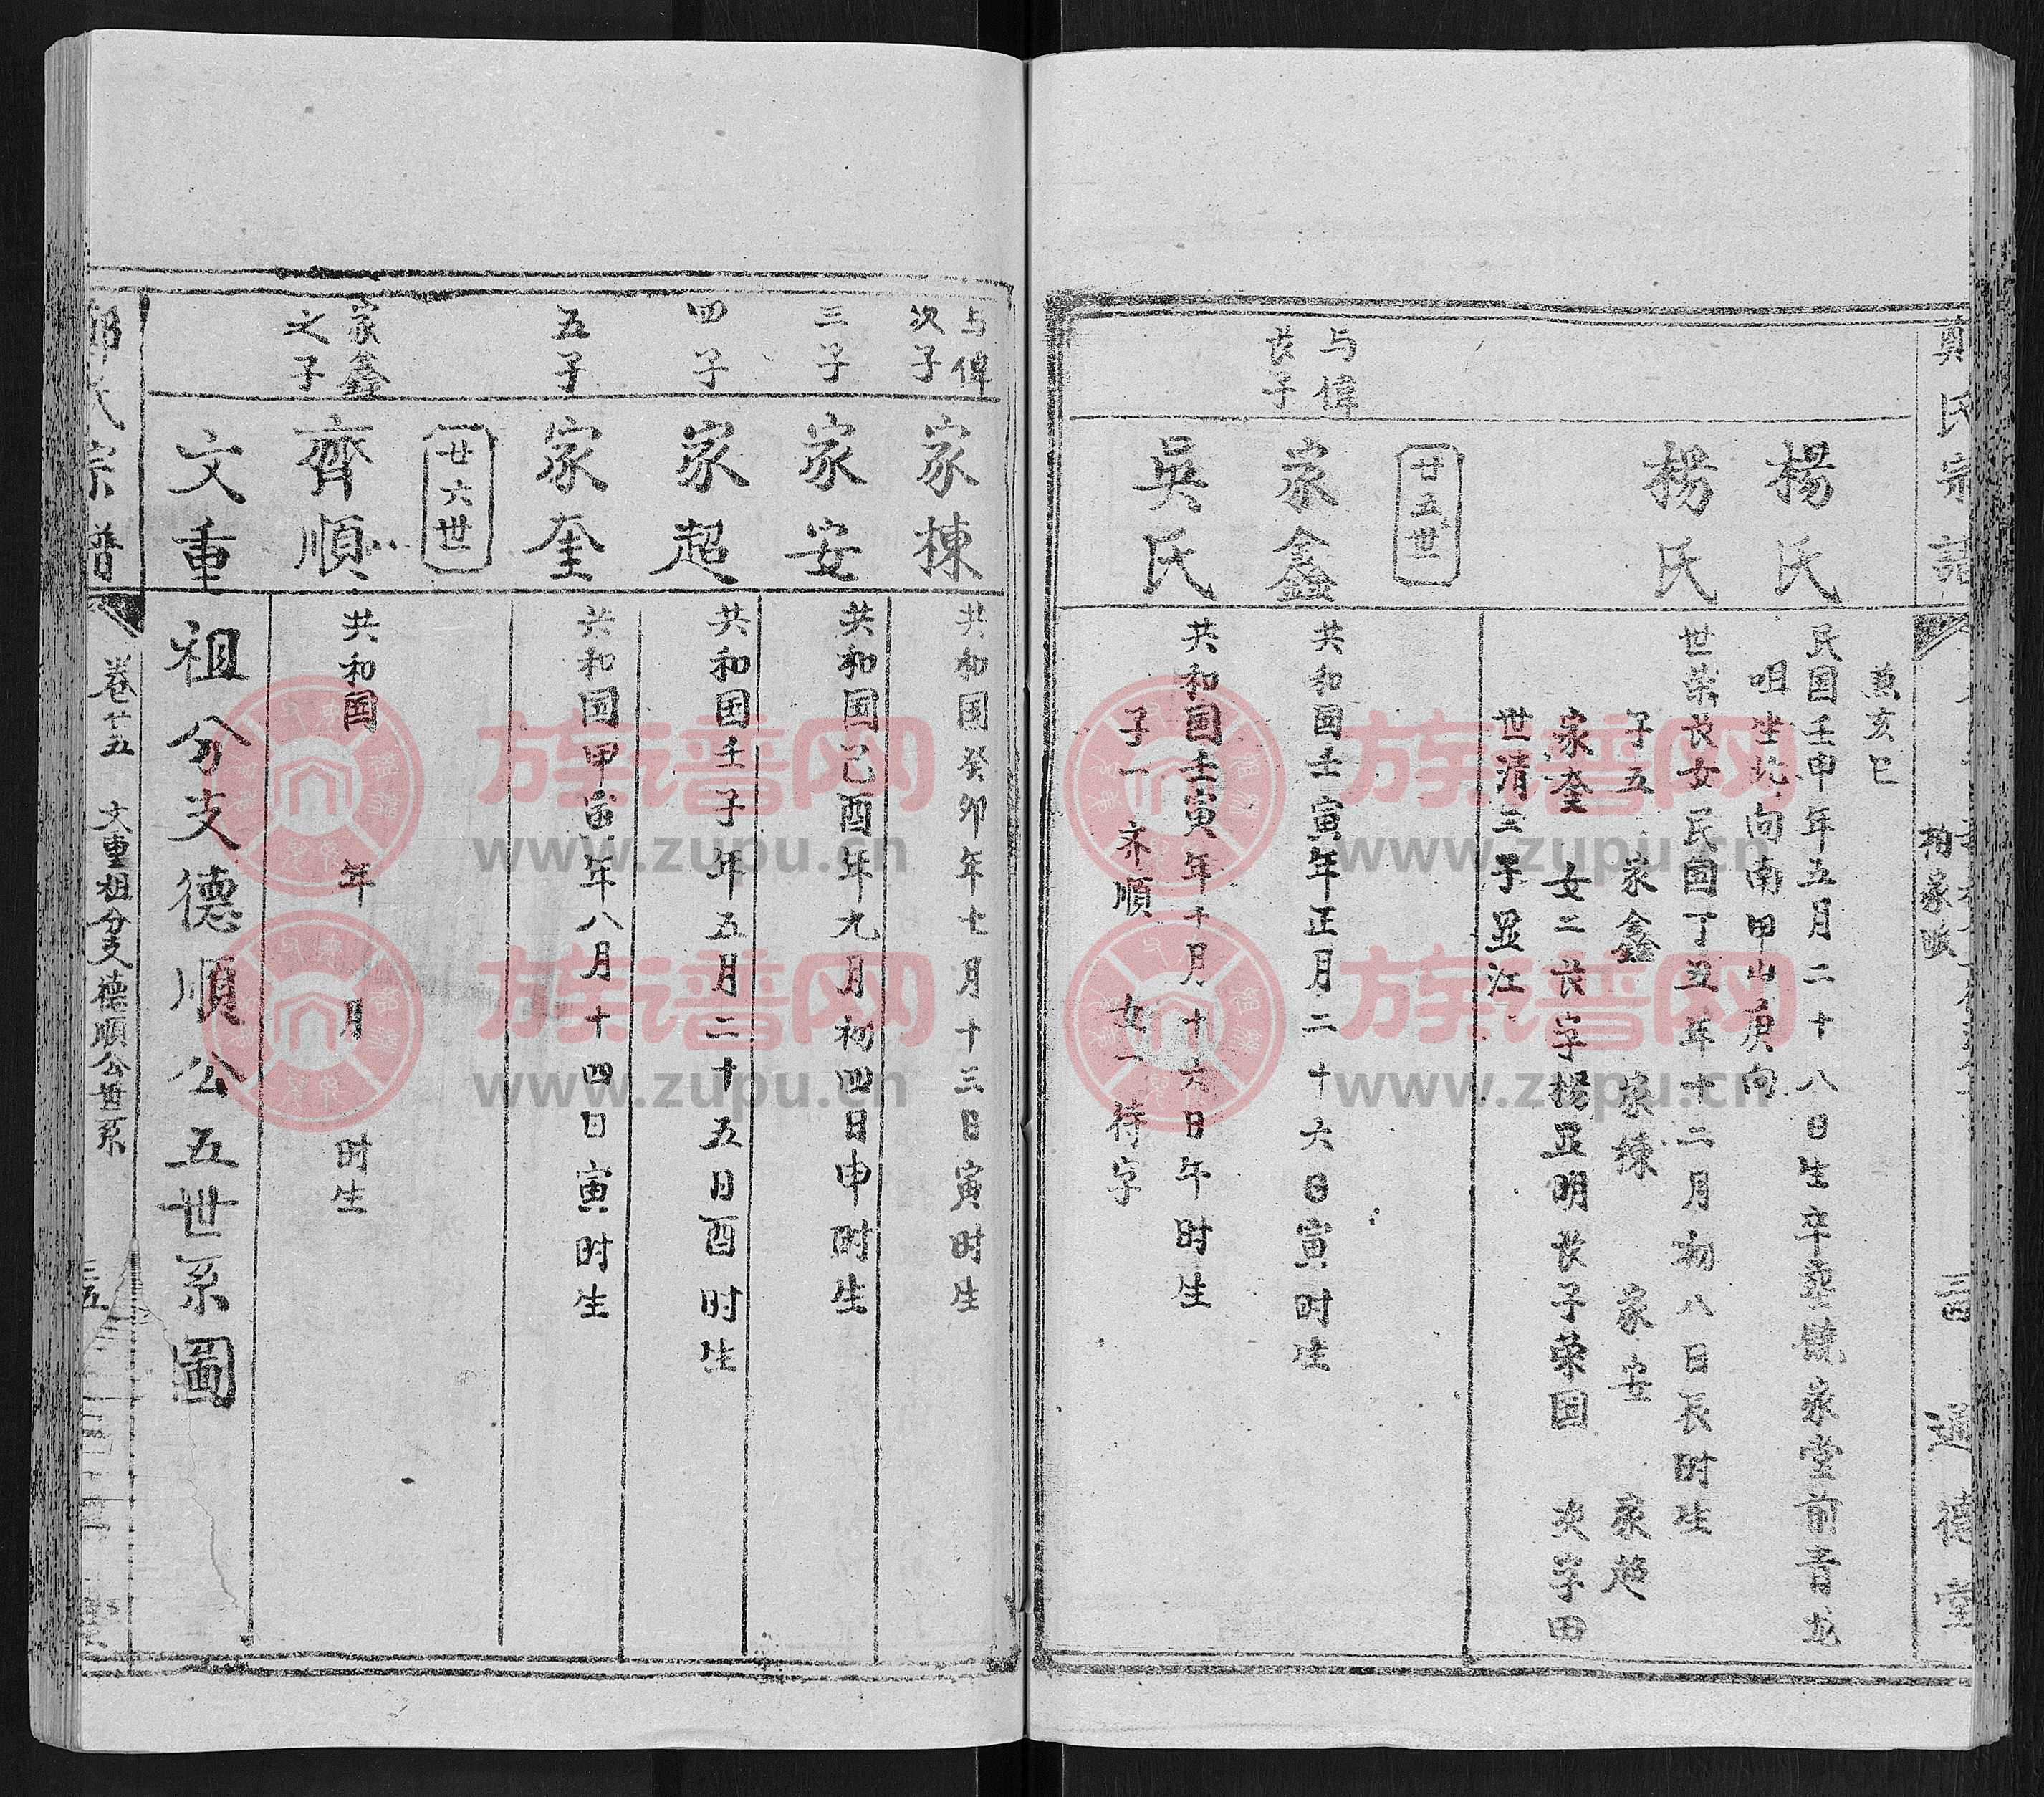 氏宗譜
通德堂
楊氏
兼亥巳
民国壬申年五月二十八日生卒塟家堂前青龙
咀坐北向南甲山庚向
楊氏
世荣长女民国丁丑年十二月初八日辰时生
子五 家鑫 家棟 家安 家超
家奎 女二长字楊显明长子荣国 次字田
世清三子显江
廿五世
与偉
长子
家鑫
共和国壬寅年正月二十六日寅时生
吳氏
共和国壬寅年十月十六日午时生
子一齐順 女一待字
与偉
次子
家棟
共和国癸卯年七月十三日寅时生
三子
家安
共和国己酉年九月初四日申时生
四子
家超
共和国壬子年五月二十五日酉时生
五子
家奎
共和国甲寅年八月十四日寅时生
廿六世
家鑫
之子
齊順
共和国 年 月 时生
文重祖分支德順公五世系圖
氏宗譜
卷廿五 文重祖分支德順公世系
三五
族谱网
www.zupu.cn
族谱网
www.zupu.cn
族谱网
www.zupu.cn
族谱网
www.zupu.cn